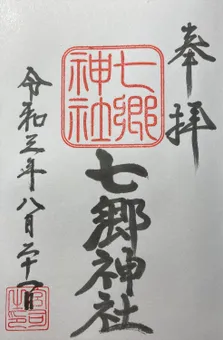 奉拝
七郷神社
七郷神社
令和三年八月二十一日